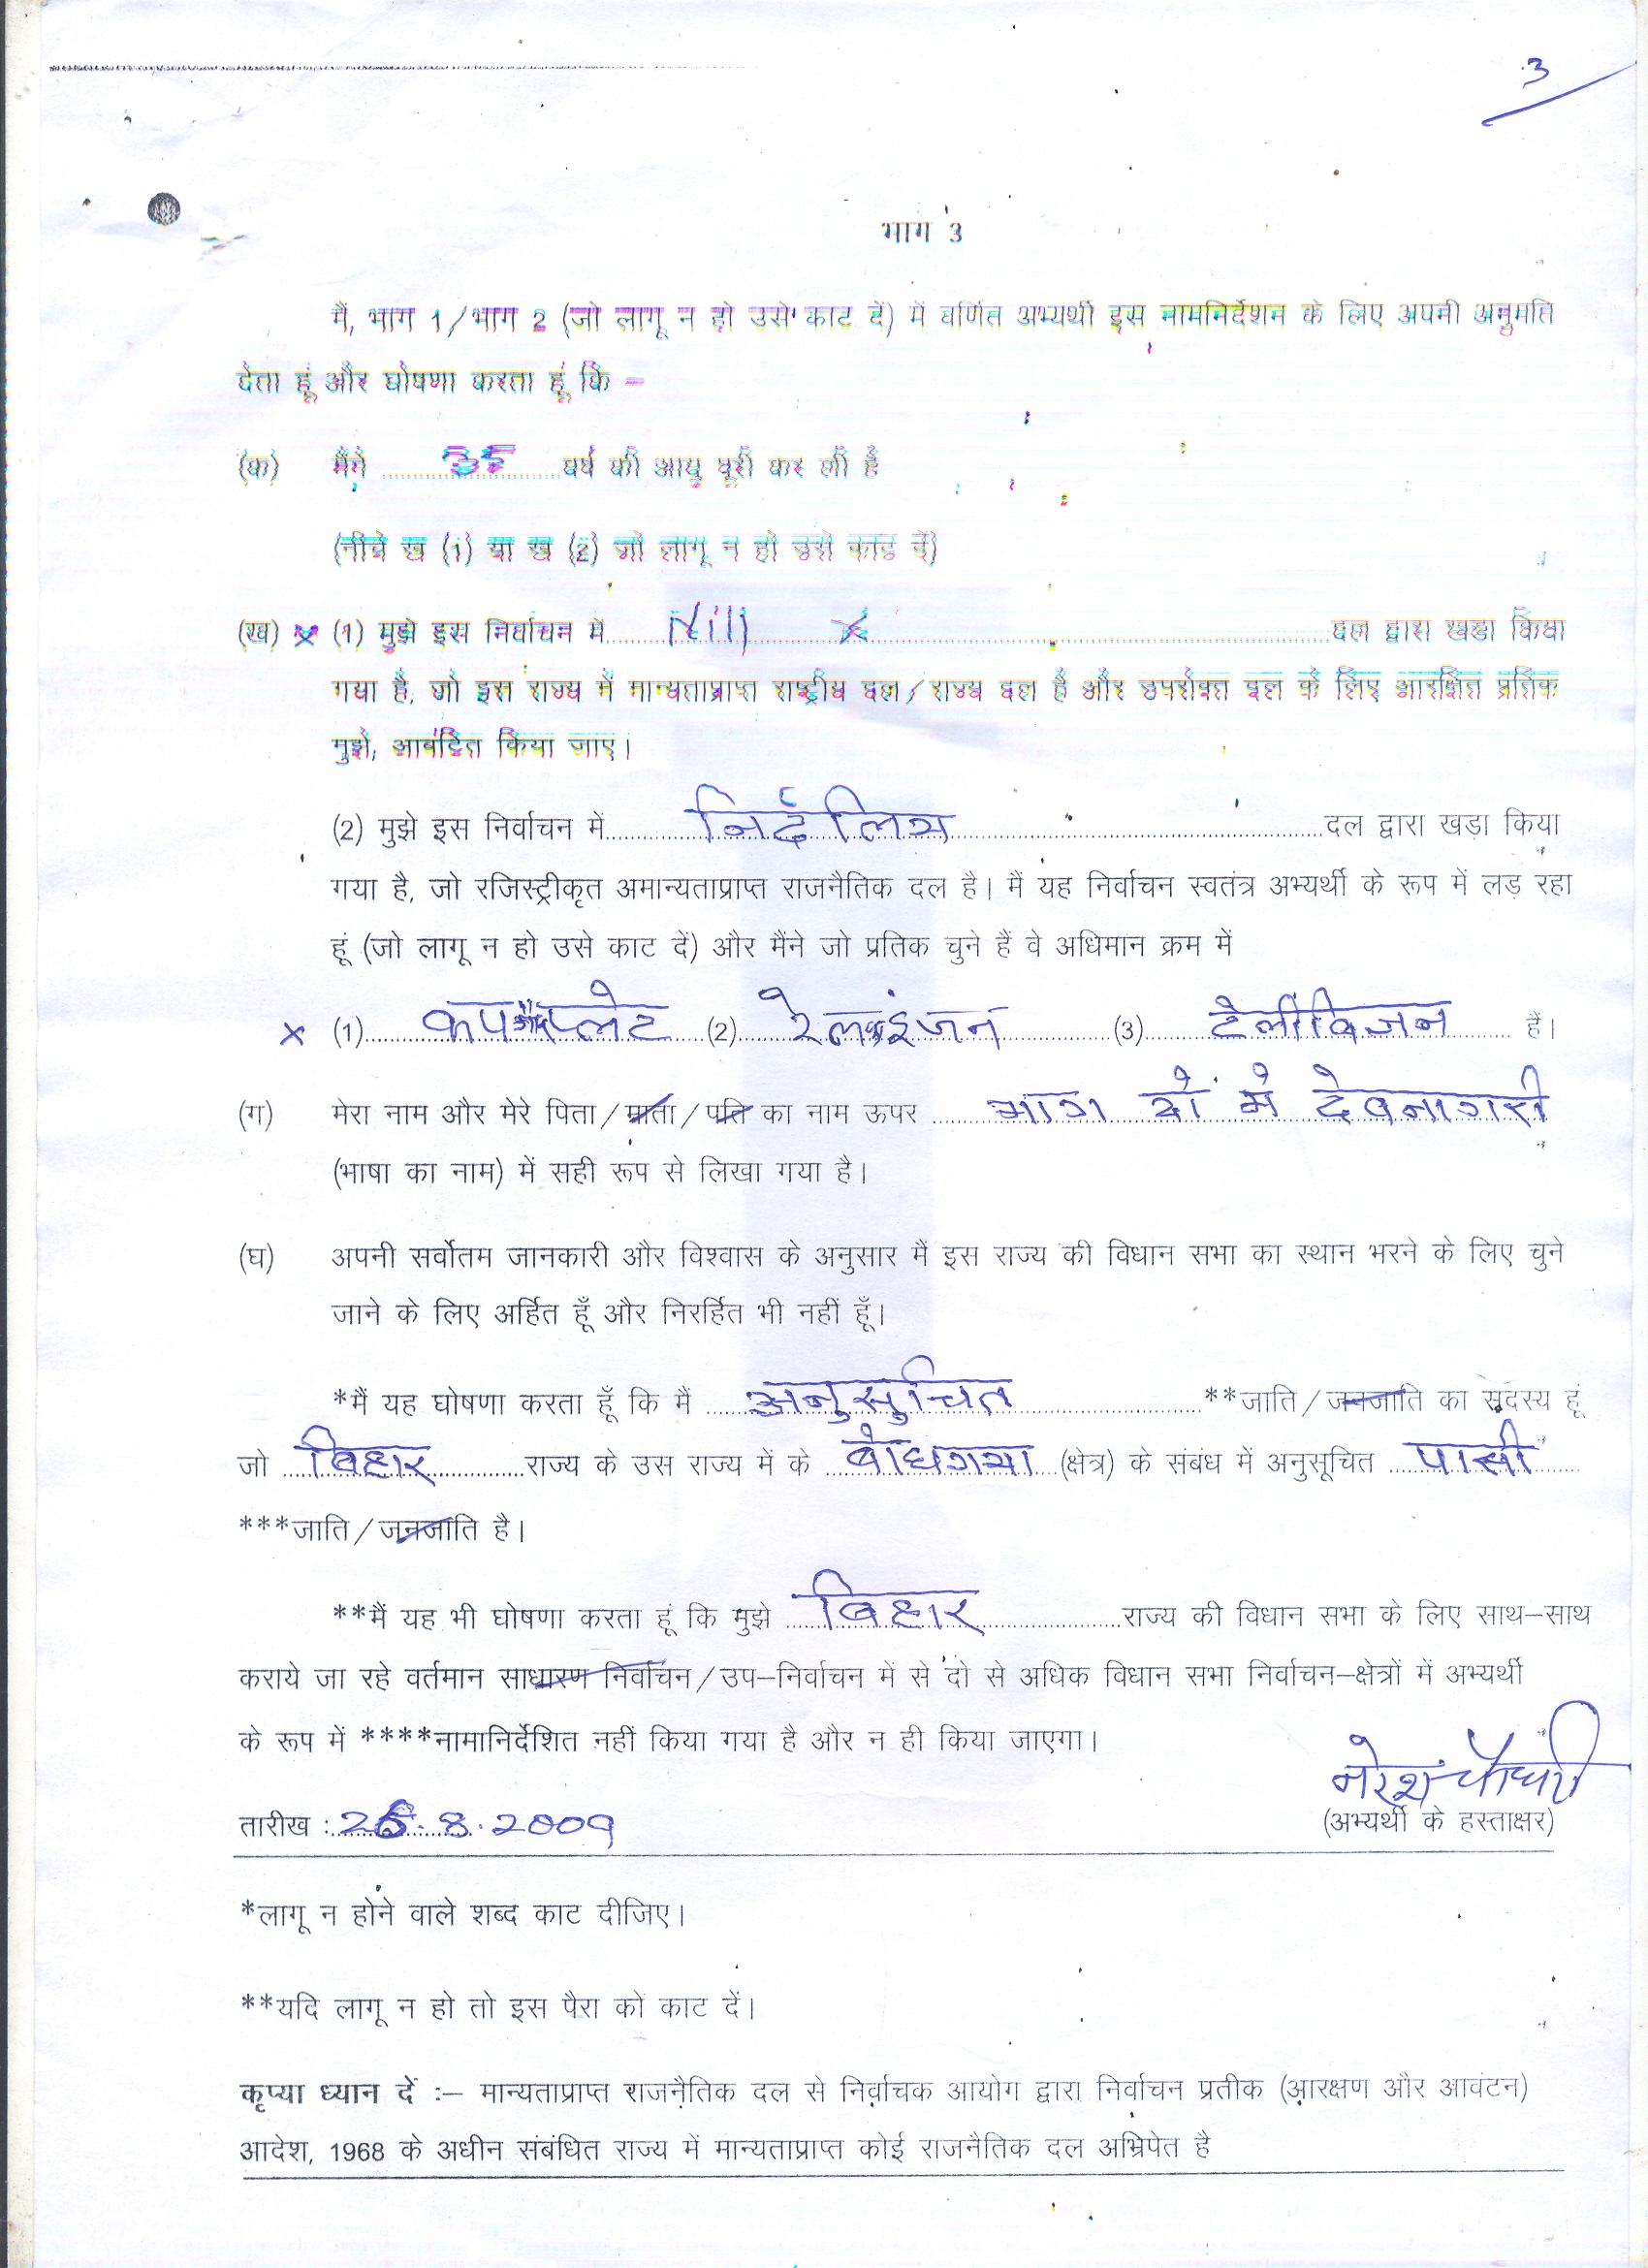 3
भाग 3
मैं, भाग 1/भाग 2 (जो लागू न हो उसे काट दें) में वर्णित अभ्यर्थी इस नामनिर्देशन के लिए अपनी अनुमति
देता हूं और घोषणा करता हूं कि –
(क) मैंने 35 वर्ष की आयु पूरी कर ली है
(नीचे ख (1) या ख (2) जो लागू न हो उसे काट दें)
(ख) x (1) मुझे इस निर्वाचन में Nill x दल द्वारा खडा किया
गया है, जो इस राज्य में मान्यताप्राप्त राष्ट्रीय दल/राज्य दल है और उपरोक्त दल के लिए आरक्षित प्रतिक
मुझे, आबंटित किया जाए।
(2) मुझे इस निर्वाचन में निर्दलिय दल द्वारा खड़ा किया
गया है, जो रजिस्ट्रीकृत अमान्यताप्राप्त राजनैतिक दल है। मैं यह निर्वाचन स्वतंत्र अभ्यर्थी के रूप में लड़ रहा
हूं (जो लागू न हो उसे काट दें) और मैंने जो प्रतिक चुने हैं वे अधिमान क्रम में
x (1) कप प्लेट (2) रेल इंजन (3) टेलीविजन हैं।
(ग) मेरा नाम और मेरे पिता/माता/पति का नाम ऊपर भाग दो में देवनागरी
(भाषा का नाम) में सही रूप से लिखा गया है।
(घ) अपनी सर्वोतम जानकारी और विश्वास के अनुसार मैं इस राज्य की विधान सभा का स्थान भरने के लिए चुने
जाने के लिए अर्हित हूँ और निरर्हित भी नहीं हूँ।
*मैं यह घोषणा करता हूँ कि मैं अनुसुचित **जाति/जनजाति का सदस्य हूं
जो बिहार राज्य के उस राज्य में के बोधगया (क्षेत्र) के संबंध में अनुसूचित पासी
***जाति/जनजाति है।
**मैं यह भी घोषणा करता हूं कि मुझे बिहार राज्य की विधान सभा के लिए साथ–साथ
कराये जा रहे वर्तमान साधारण निर्वाचन/उप–निर्वाचन में से दो से अधिक विधान सभा निर्वाचन–क्षेत्रों में अभ्यर्थी
के रूप में ****नामानिर्देशित नहीं किया गया है और न ही किया जाएगा।
नरेश चौधरी
तारीख : 26.8.2009 (अभ्यर्थी के हस्ताक्षर)
*लागू न होने वाले शब्द काट दीजिए।
**यदि लागू न हो तो इस पैरा को काट दें।
कृप्या ध्यान दें :– मान्यताप्राप्त राजनैतिक दल से निर्वाचक आयोग द्वारा निर्वाचन प्रतीक (आरक्षण और आवंटन)
आदेश, 1968 के अधीन संबंधित राज्य में मान्यताप्राप्त कोई राजनैतिक दल अभिप्रेत है